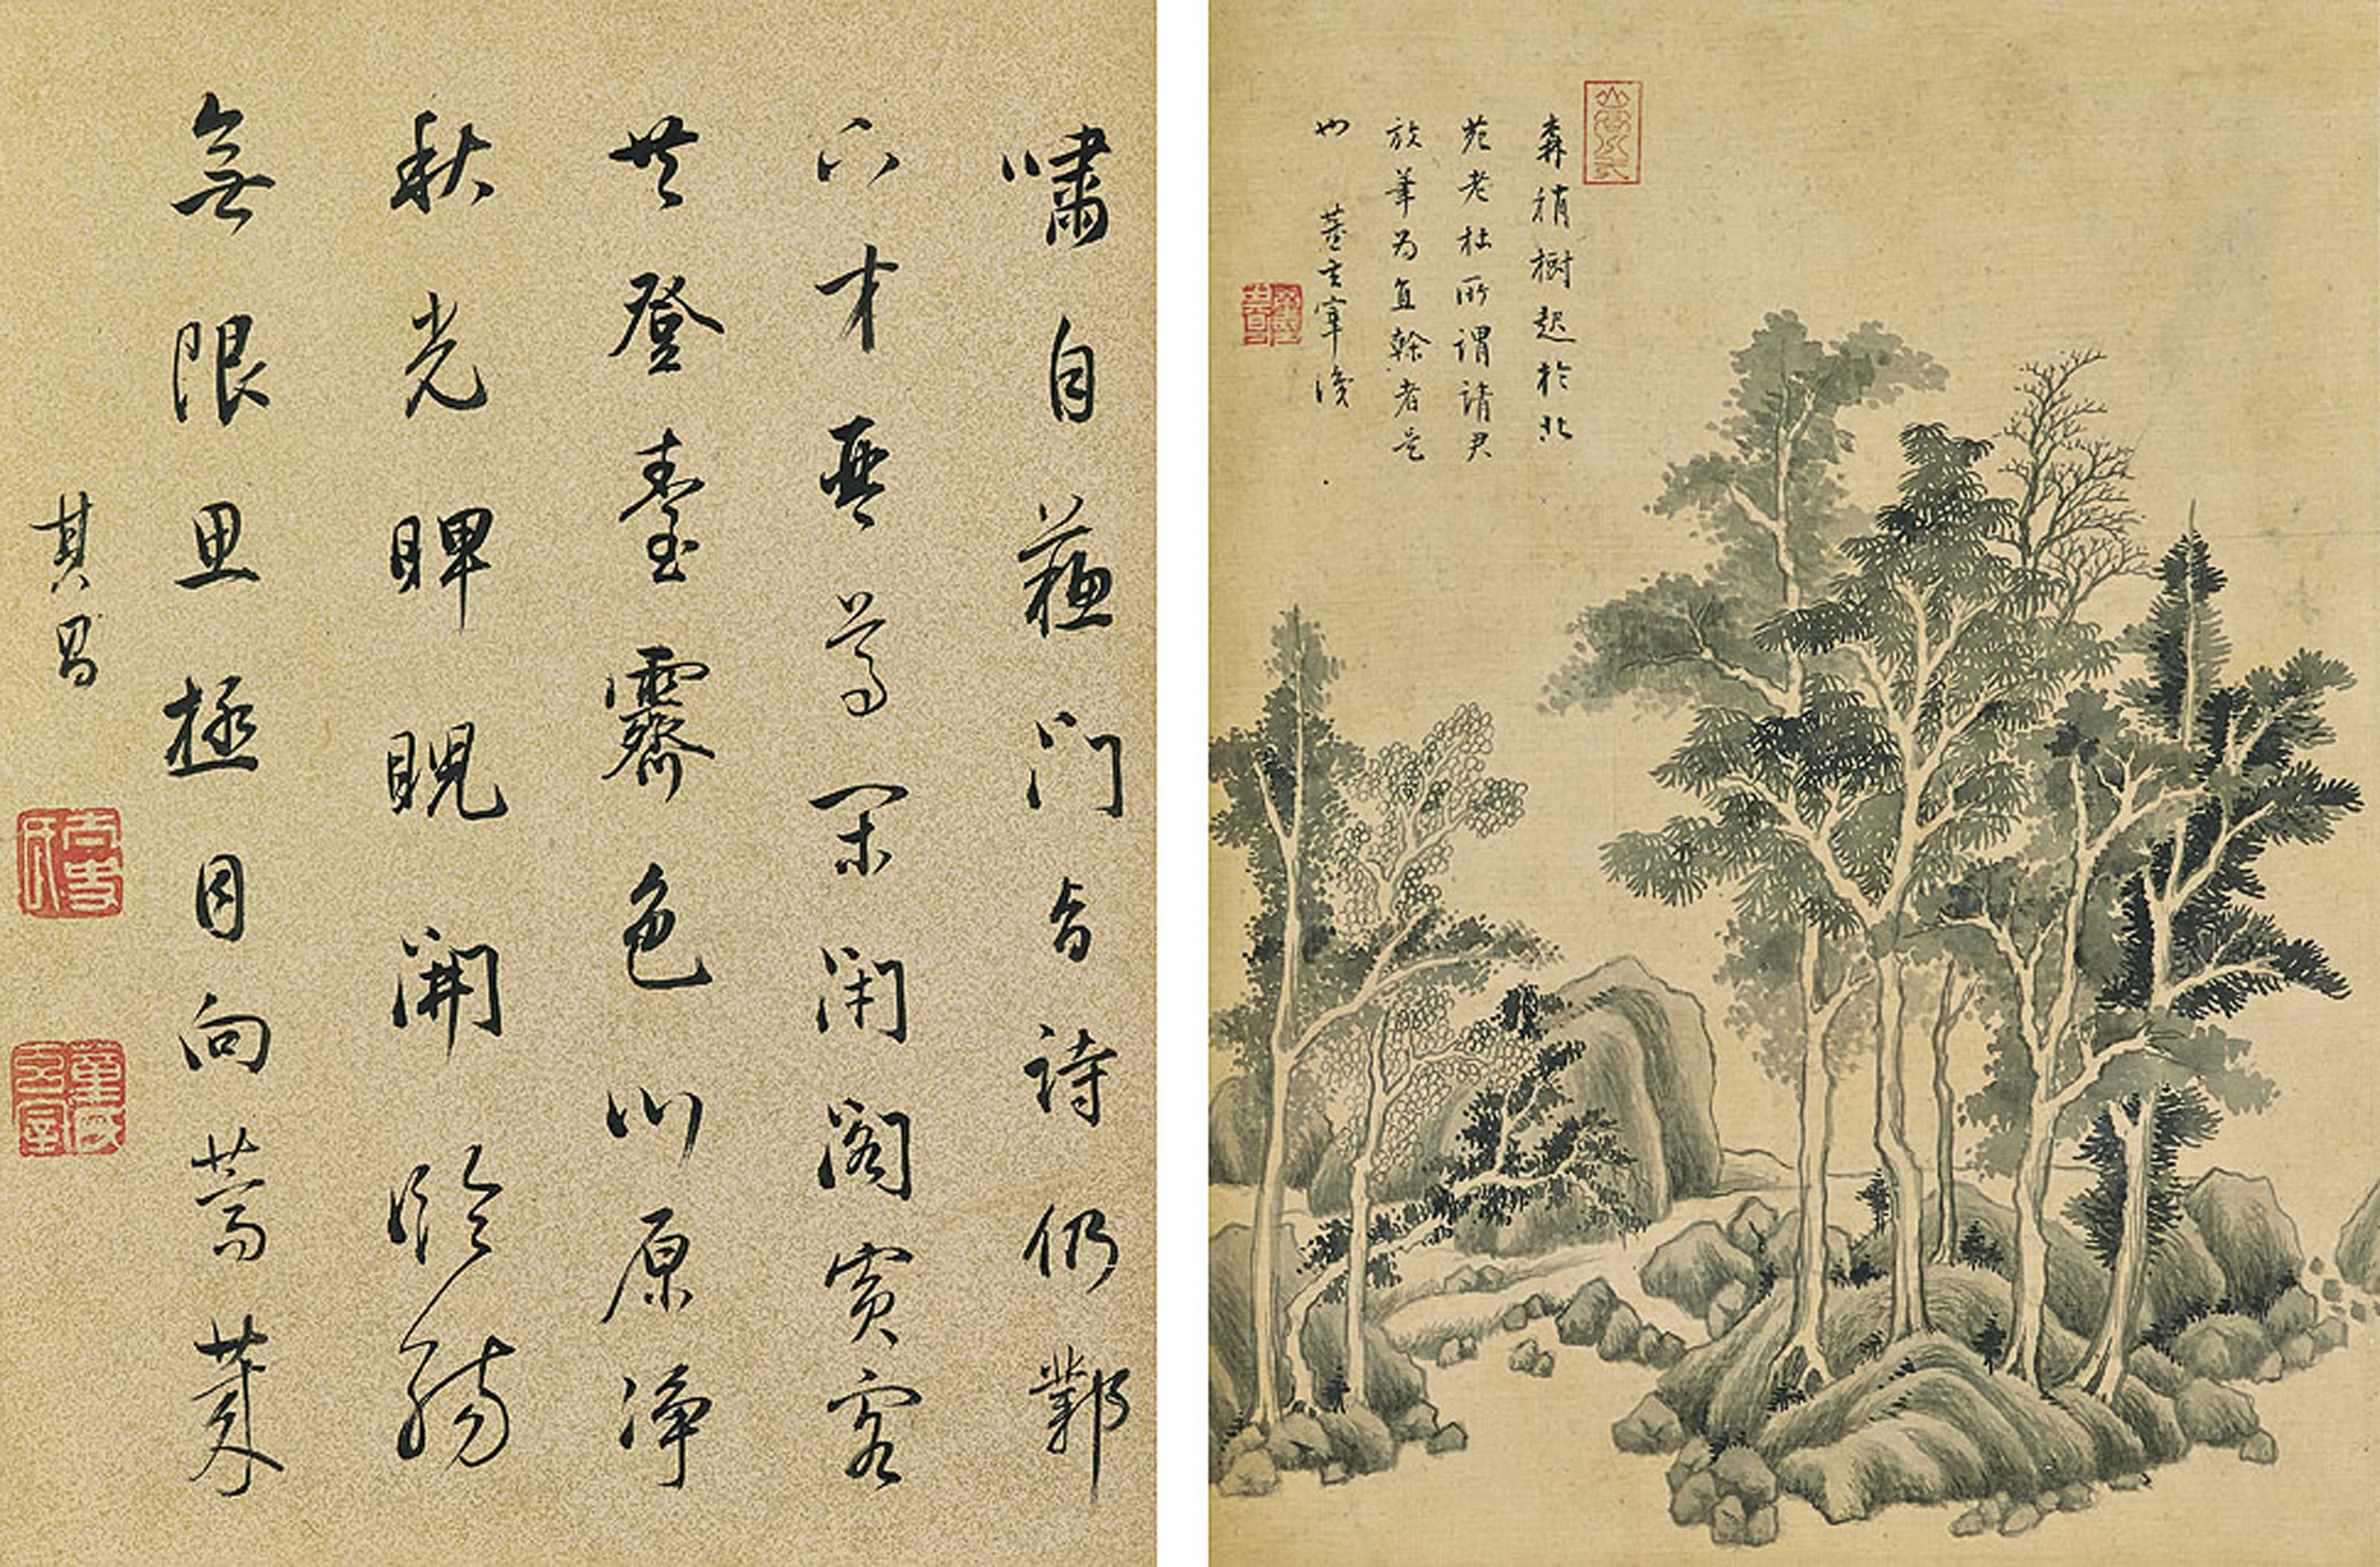 嘯自蘇門詩仍鄴
下才琴尊閑閣賓客
共登臺霽色山原淨
秋光睥睨開臨觴
無限思極目向蒿萊
其昌
森梢樹起於北
苑老杜所謂請君
放筆為直幹者是
也 董玄宰識